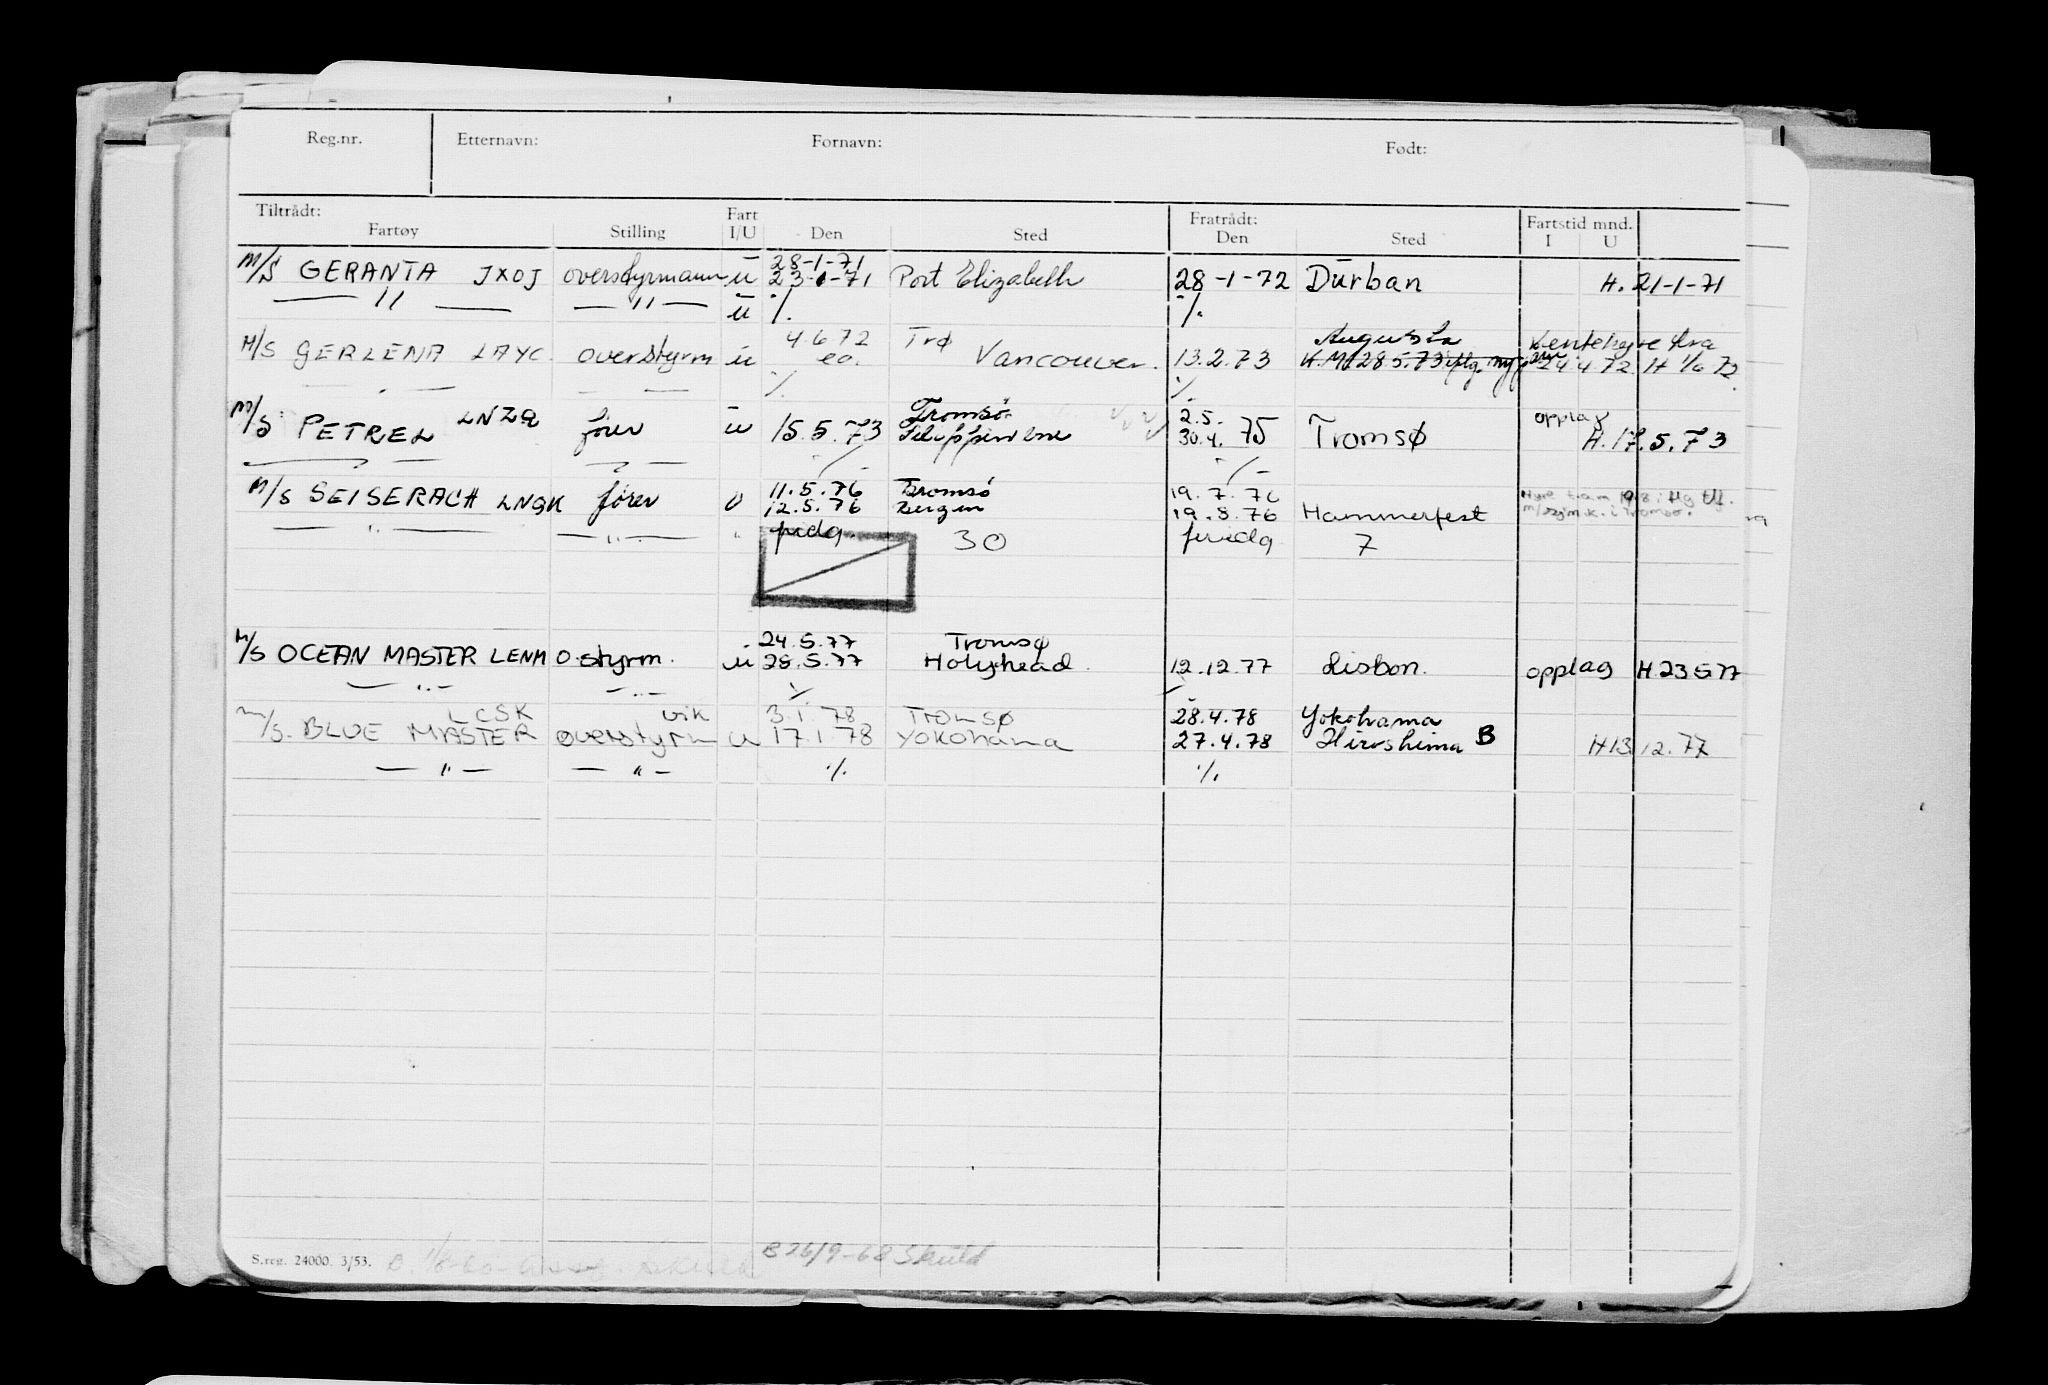 Reg.nr. Etternavn: Fornavn: Født:
Tiltrådt: Fart Fratrådt: Fartstid mnd.
Fartøy Stilling I/U Den Sted Den Sted I U
28-1-71
M/S GERANTA JXOJ overstyrmann u 23-1-71 Port Elizabeth 28-1-72 Durban H. 21-1-71
— " — — " — u ·/. ·/.
4 6 72 Trø Augusta
M/S GERLENA LAYC. overstyrm u Vancouver. 13.2.73 24 4 72. H 1/6 72.
— " — — — ·/. ·/.
Tromsø 2.5. opplag
M/S PETREL LNZQ fører u 15.5.73 30.4. 75 Tromsø H. 17.5.73
11.5.76 Tromsø 19.7.76
M/S SEISERACH LNQK fører 12.5.76 Bergen 19.8.76 Hammerfest
— " — — " — " 30 7
24.5.77 Tromsø
M/S OCEAN MASTER LENM O.styrm. u 28.5.77 Holyhead. 12.12.77 Lisbon. opplag H.23 5 77
— " — — " — ·/. ·/.
LCSK vik 3.1.78 Tromsø 28.4.78 Yokohama
M/S. BLUE MASTER overstyrm u 17.1 78 Yokohama 27.4.78 Hiroshima B H13.12.77
— " — — " — ·/. ·/.
S.reg. 24000. 3/53. B 26/9-68 Skuld